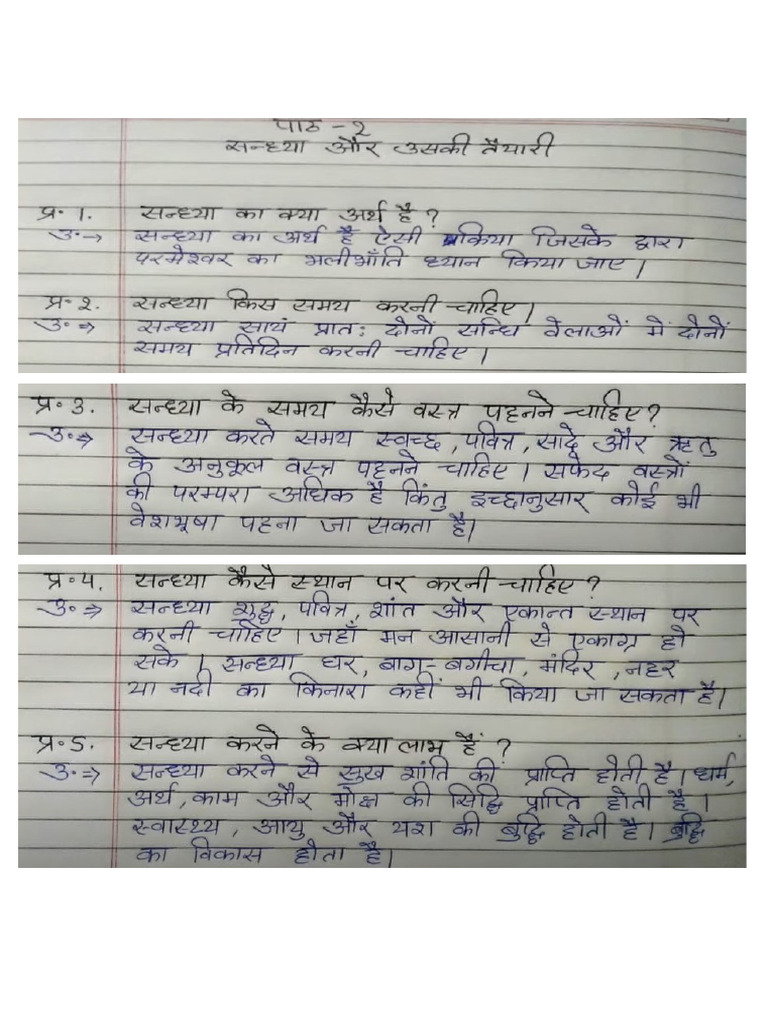 पाठ - २
सन्ध्या और उसकी तैयारी
प्र० 1. सन्ध्या का क्या अर्थ है ?
उ० → सन्ध्या का अर्थ है ऐसी प्रक्रिया जिसके द्वारा
परमेश्वर का भलीभाँति ध्यान किया जाए ।
प्र० २. सन्ध्या किस समय करनी चाहिए ।
उ० ⇒ सन्ध्या सायं प्रात: दोनों सन्धि वेलाओं में दोनों
समय प्रतिदिन करनी चाहिए ।
प्र० 3. सन्ध्या के समय कैसे वस्त्र पहनने चाहिए ?
उ० ⇒ सन्ध्या करते समय स्वच्छ , पवित्र , सादे और ऋतु
के अनुकूल वस्त्र पहनने चाहिए । सफेद वस्त्रों
की परम्परा अधिक है किंतु इच्छानुसार कोई भी
वेशभूषा पहना जा सकता है।
प्र० 4. सन्ध्या कैसे स्थान पर करनी चाहिए ?
उ० ⇒ सन्ध्या शुद्ध , पवित्र , शांत और एकान्त स्थान पर
करनी चाहिए । जहाँ मन आसानी से एकाग्र हो
सके । सन्ध्या घर , बाग - बगीचा , मंदिर , नहर
या नदी का किनारा कहीं भी किया जा सकता है।
प्र० 5. सन्ध्या करने के क्या लाभ हैं ?
उ० ⇒ सन्ध्या करने से सुख शांति की प्राप्ति होती है । धर्म,
अर्थ , काम और मोक्ष की सिद्धि प्राप्ति होती है ।
स्वास्थ्य , आयु और यश की बुद्धि होती है । बुद्धि
का विकास होता है।